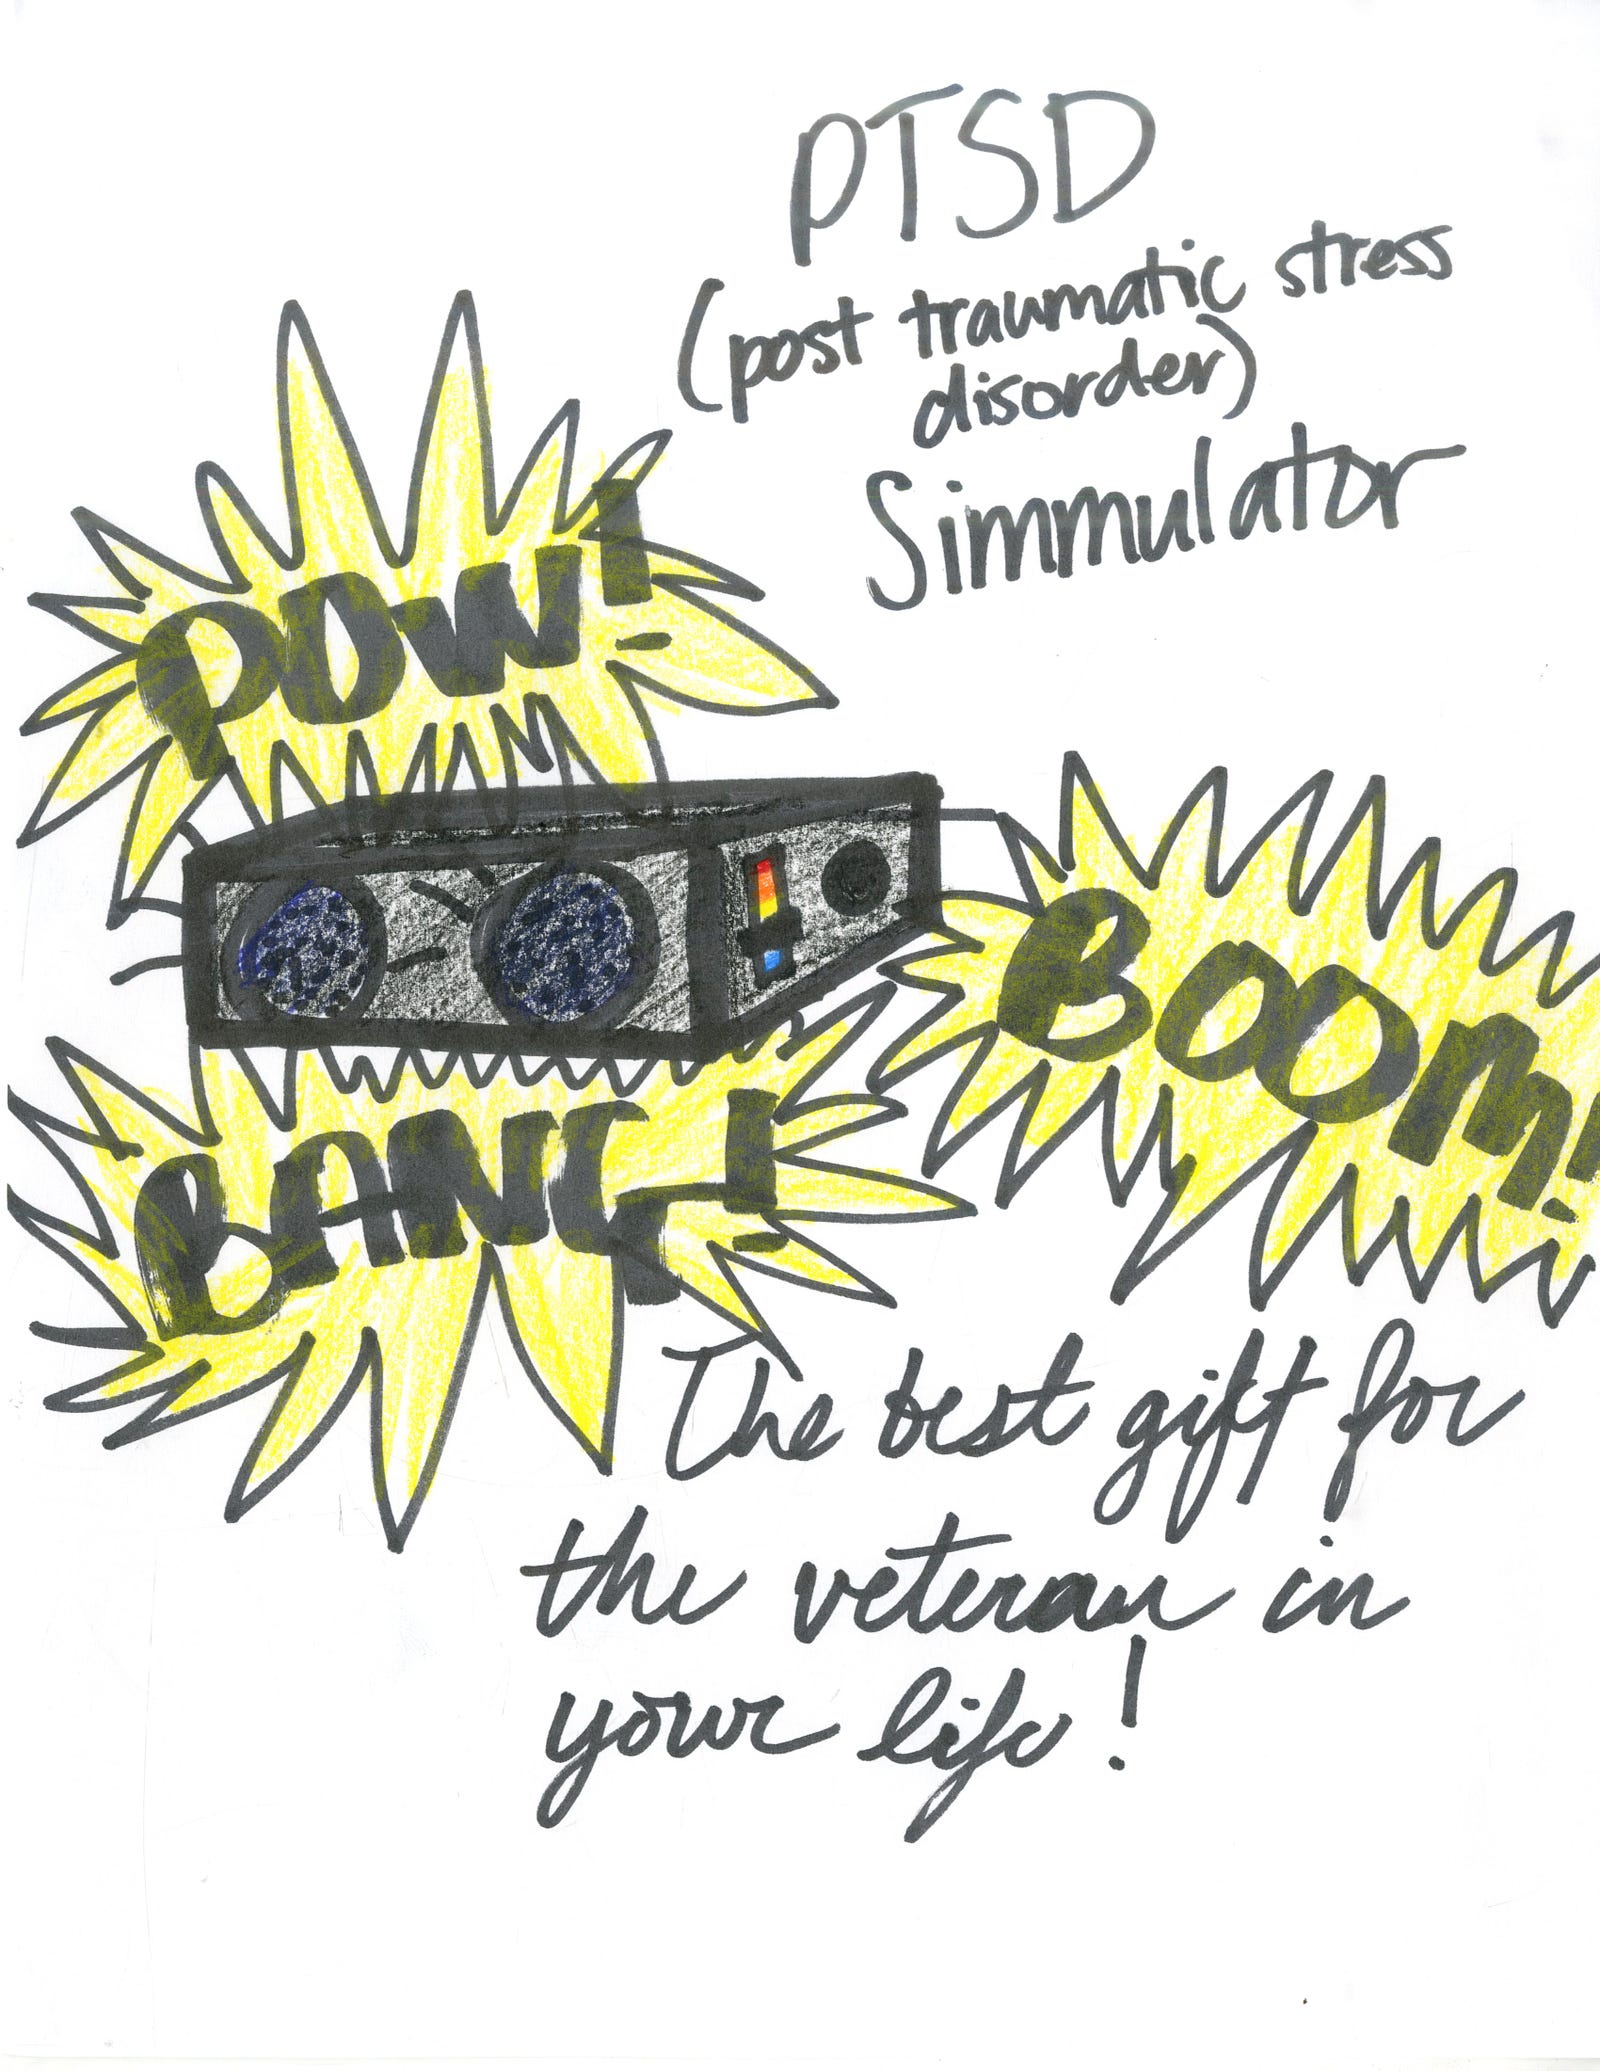 PTSD
(post traumatic stress
disorder)
Simmulator
POW!
BOOM!
BANG!
The best gift for
the veteran in
your life!